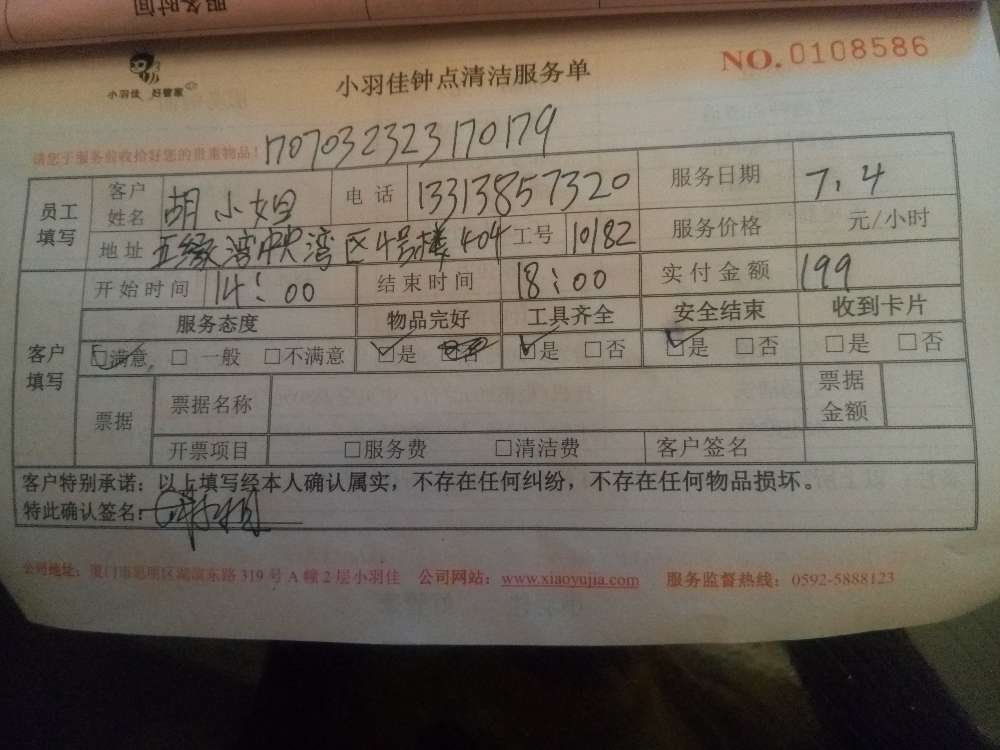 服务时间
小羽佳 好管家
小羽佳钟点清洁服务单
NO.0108586
请您于服务前收拾好您的贵重物品！
170703232317017​9
员工填写 客户姓名 胡小姐 电话 13313857320 服务日期 7.4
地址 五缘湾中央湾区4号楼404 工号 10182 服务价格 元/小时
开始时间 14:00 结束时间 18:00 实付金额 199
客户填写 服务态度 物品完好 工具齐全 安全结束 收到卡片
☑满意 □一般 □不满意 ☑是 否 ☑是 □否 ☑是 □否 □是 □否
票据 票据名称 票据金额
开票项目 □服务费 □清洁费 客户签名
客户特别承诺：以上填写经本人确认属实，不存在任何纠纷，不存在任何物品损坏。
特此确认签名：
公司地址：厦门市思明区湖滨东路319号A幢2层小羽佳 公司网站：www.xiaoyujia.com 服务监督热线：0592-5888123